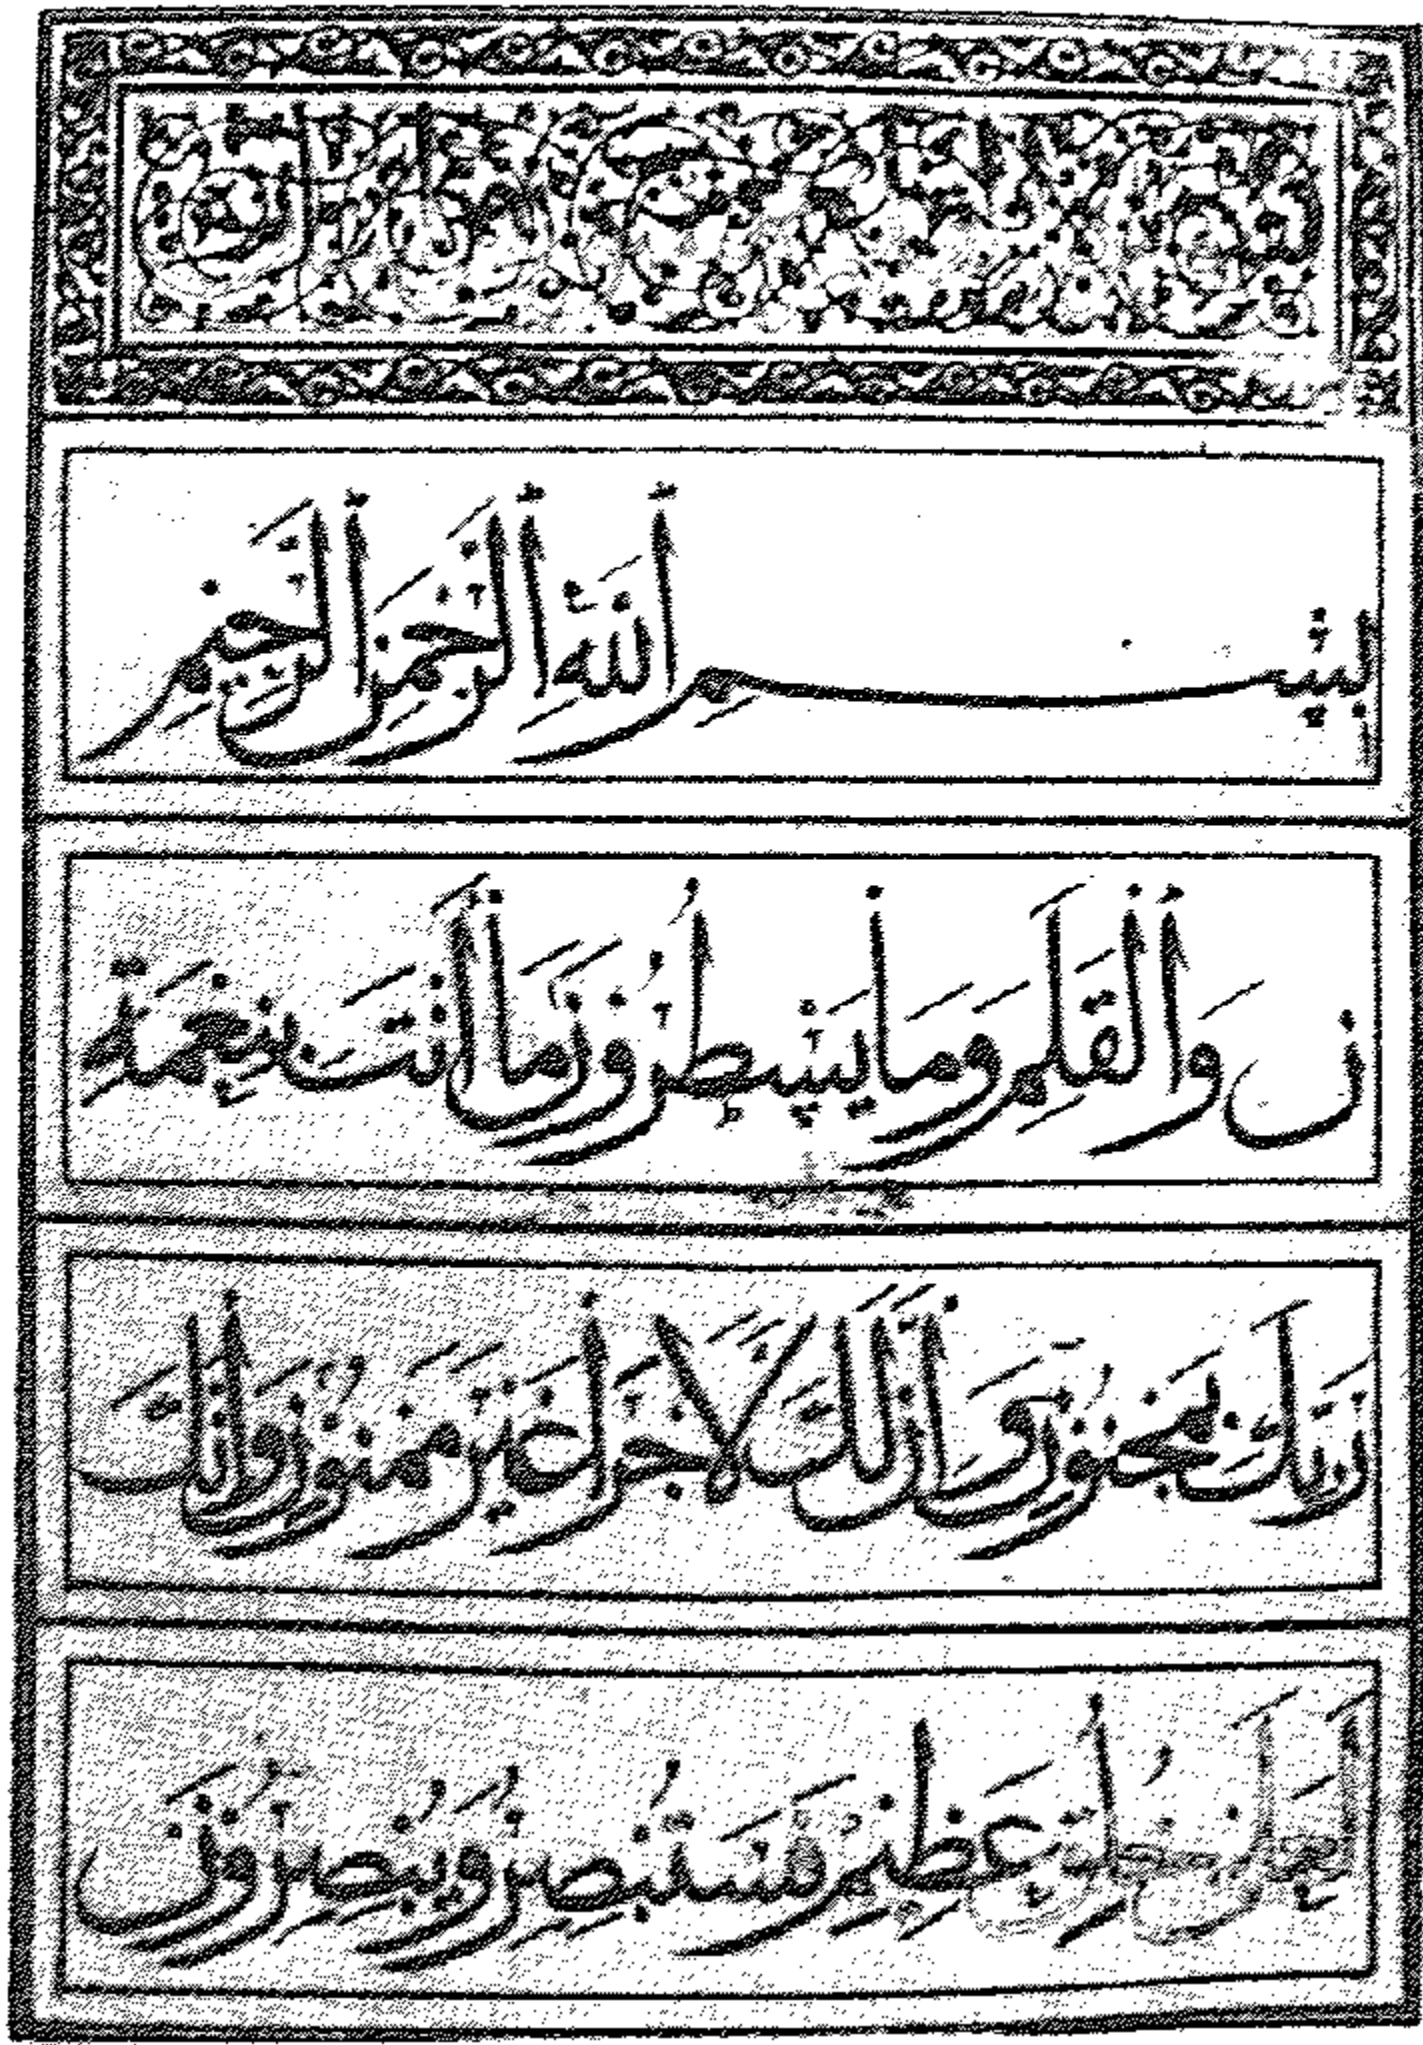 بِسْمِ ٱللَّهِ ٱلرَّحْمَنِ ٱلرَّحِيمِ
ن وَٱلْقَلَمِ وَمَا يَسْطُرُونَ مَا أَنتَ بِنِعْمَةِ
رَبِّكَ بِمَجْنُونٍ وَإِنَّ لَكَ لَأَجْرًا غَيْرَ مَمْنُونٍ وَإِنَّكَ
لَعَلَى خُلُقٍ عَظِيمٍ فَسَتُبْصِرُ وَيُبْصِرُونَ